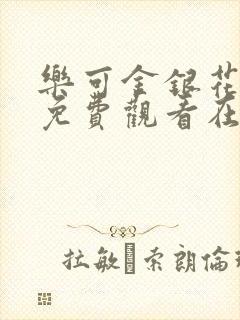 樂可金銀花
免費觀看在
拉敏 索朗倫